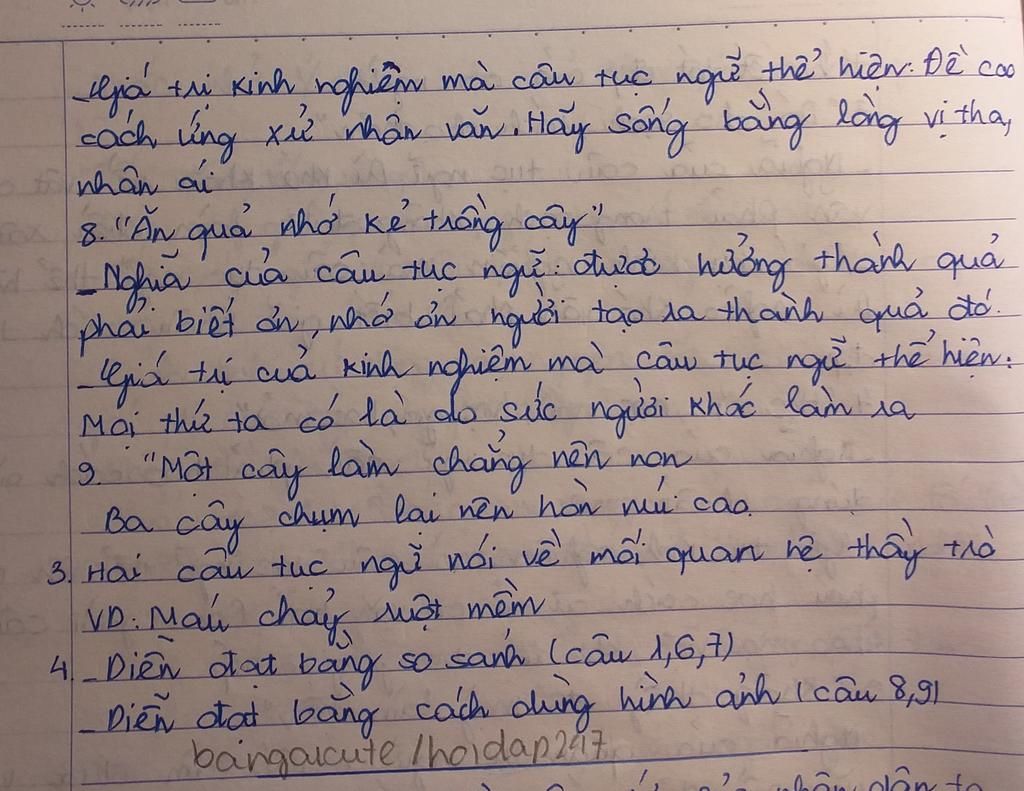 _Giá trị kinh nghiệm mà câu tục ngữ thể hiện: Đề cao
cách ứng xử nhân văn. Hãy sống bằng lòng vị tha,
nhân ái
8. "Ăn quả nhớ kẻ trồng cây"
_Nghĩa của câu tục ngữ: được hưởng thành quả
phải biết ơn, nhớ ơn người tạo ra thành quả đó.
_Giá trị cuả kinh nghiệm mà câu tục ngữ thể hiện:
Mọi thứ ta có là do sức người khác làm ra
9. "Một cây làm chẳng nên non
Ba cây chụm lại nên hòn núi cao
3. Hai câu tục ngữ nói về mối quan hệ thầy trò
VD: Máu chảy ruột mềm
4 _Diễn đạt bằng so sánh (câu 1,6,7)
_Diễn đạt bằng cách dùng hình ảnh (câu 8,9)
bangaicute/hoidap247
nhân dân ta